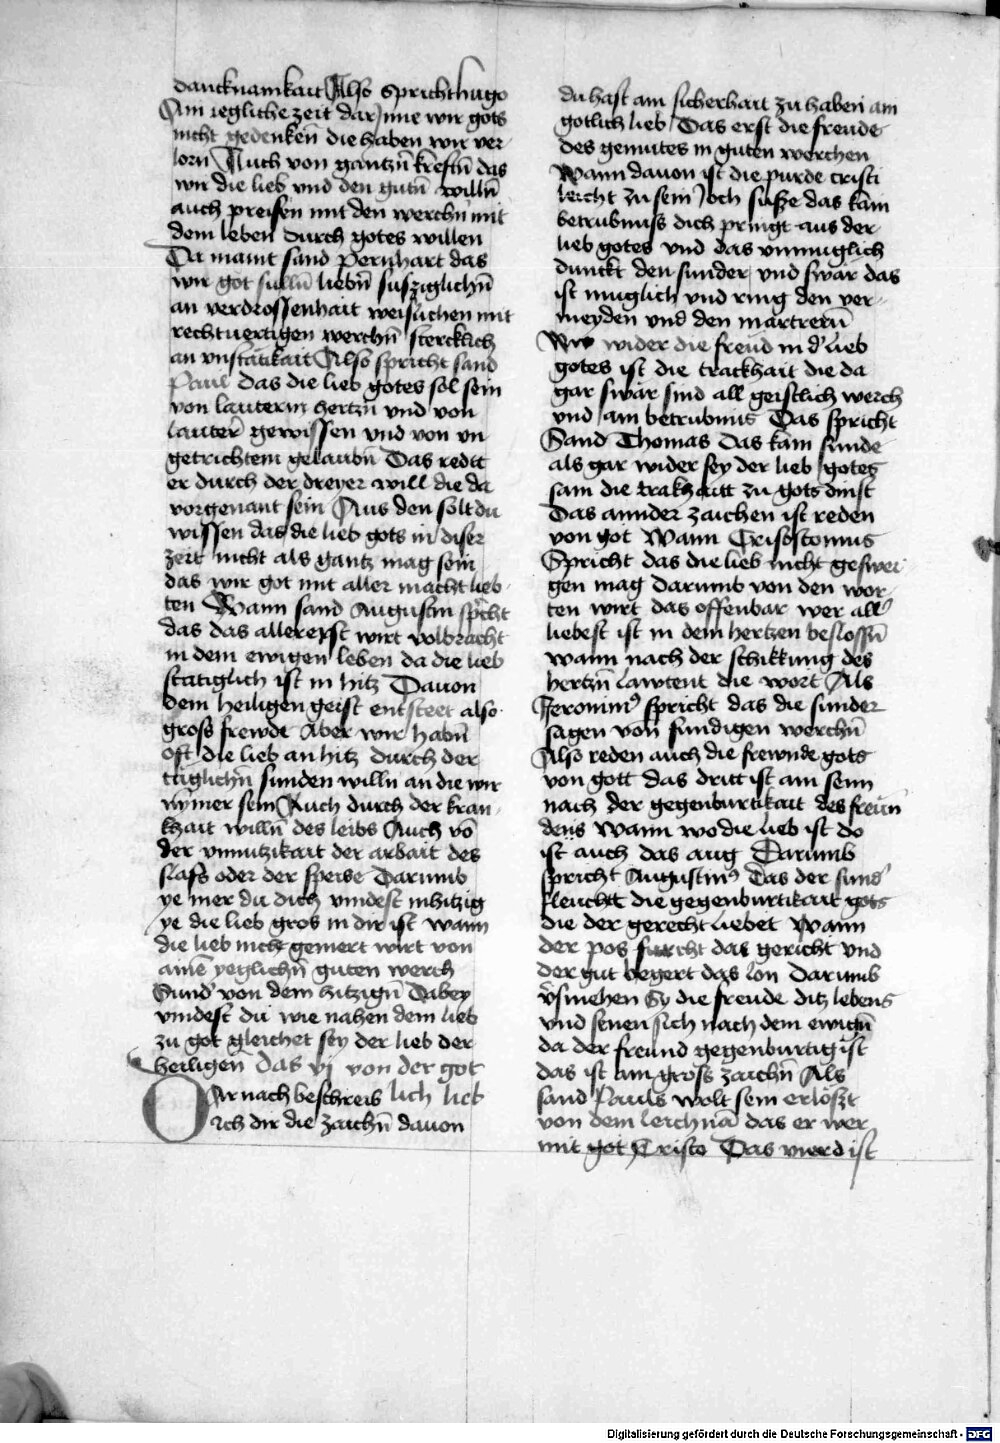 dancknamkait Also spricht hugo
Am iegliche zeit dar Inne wir gots
nicht gedenken̄ die haben wir ver-
lorn Auch von gantzn̄ kreftn̄ das
wir die lieb vnd den gutn̄ willn̄
auch preisen mit den werchn̄ mit
dem leben durch gotes willen
Da maint sand Pernhart das
wir got sulln̄ liebn̄ susziglichn̄
an verdrossenhait weisl̄ichen mit
rechtuertigen werchn̄ stercklich
an vnstatikait Also spricht sand
Paul das die lieb gotes sol sein
von lauterm hertzn̄ vnd von
lauter̄ gewissen vnd von vn-
getrichtem gelaubn̄ Das redtt
er durch der dreyer will die da
vorgenant sein Aus den solt du
wissen das die lieb gots in diser
zeit nicht als gantz mag sein
das wir got mit aller macht lieb-
ten Wann sand Augustin sp̄cht
das das allererst wirt volbracht
in dem ewigen leben da die lieb
statiglich ist in hitz Dauon
dem heiligen geist entsteet also
gross frewdt Aber wir habn̄
oft die lieb an hitz durch der
tǎglichn̄ sunden willn̄ an die wir
nymer sein Auch durch der kran-
khait willn̄ des leibs Auch vō
der vnnutzikait der arbait des
slafs oder der speise Darumb
ye mer du dich vindest inhitzig
ye die lieb gros in dir ist wann
die lieb nicht gemert wirt von
ainē yeglichn̄ guten werch
Sund' von dem hitzign̄ Dabey
vindest du wie nahen dem lieb
zu got gleichet sey der lieb der
heiligen̄ das vj von der got
DAr nach beschreib lich lieb
Ich dir die zaichn̄ dauon
du hast am sicherhait zu haben am
gotlich lieb Das erst die freude
des gemutes in guten werchen
Wann dauon ist die purde cristi
leicht zu sein Joch susze das kain
betrubnuss dich pringt aus der
lieb gotes vnd das vnmuglich
dunckt den sunder vnd swar das
ist muglich vnd ring den ver-
meyden vnd den martrern̄
wider die freud in d' lieb
gotes ist die trackhait die da
gar swar sind all geistlich werch
vnd am betrubnus Das spricht
Sand Thomas das kain sunde
als gar wider sey der lieb gotes
sam die trakhaitt zu gots dinst
Das annder zaichen ist reden
von got Wann Crisostomus
Spricht das die lieb nicht geswei-
gen mag darumb von den wor-
ten wirt das offenbar wer all'
liebest ist in dem hertzen beslossn̄
wann nach der schikkung des
hertzn̄ lawtent die wort Als
Jeronim9 spricht das die sunder
sagen von sundigen werchn̄
Also reden auch die frewnde gots
von gott das dritt ist am senn
nach der gegenburtikait des freun-
deſs wann wo die lieb ist do
ist auch das aug Darumb
spricht Augustin9 das der sund'
fleuchtt die gegenburtikait gots
die der gerecht liebet Wann
der pos furcht das gericht vnd
der gut begert das lon Darumb
v'smehen Sy die freude ditz lebens
vnd senen sich nach dem ewign̄
da der freund gegenburtig ist
das ist am gross zaichn̄ Als
sand Pauls wolt sein erlöszt
von dem leichnā das er wer
mit got Cristo Das vierd ist
Digitalisierung gefördert durch die Deutsche Forschungsgemeinschaft - DFG